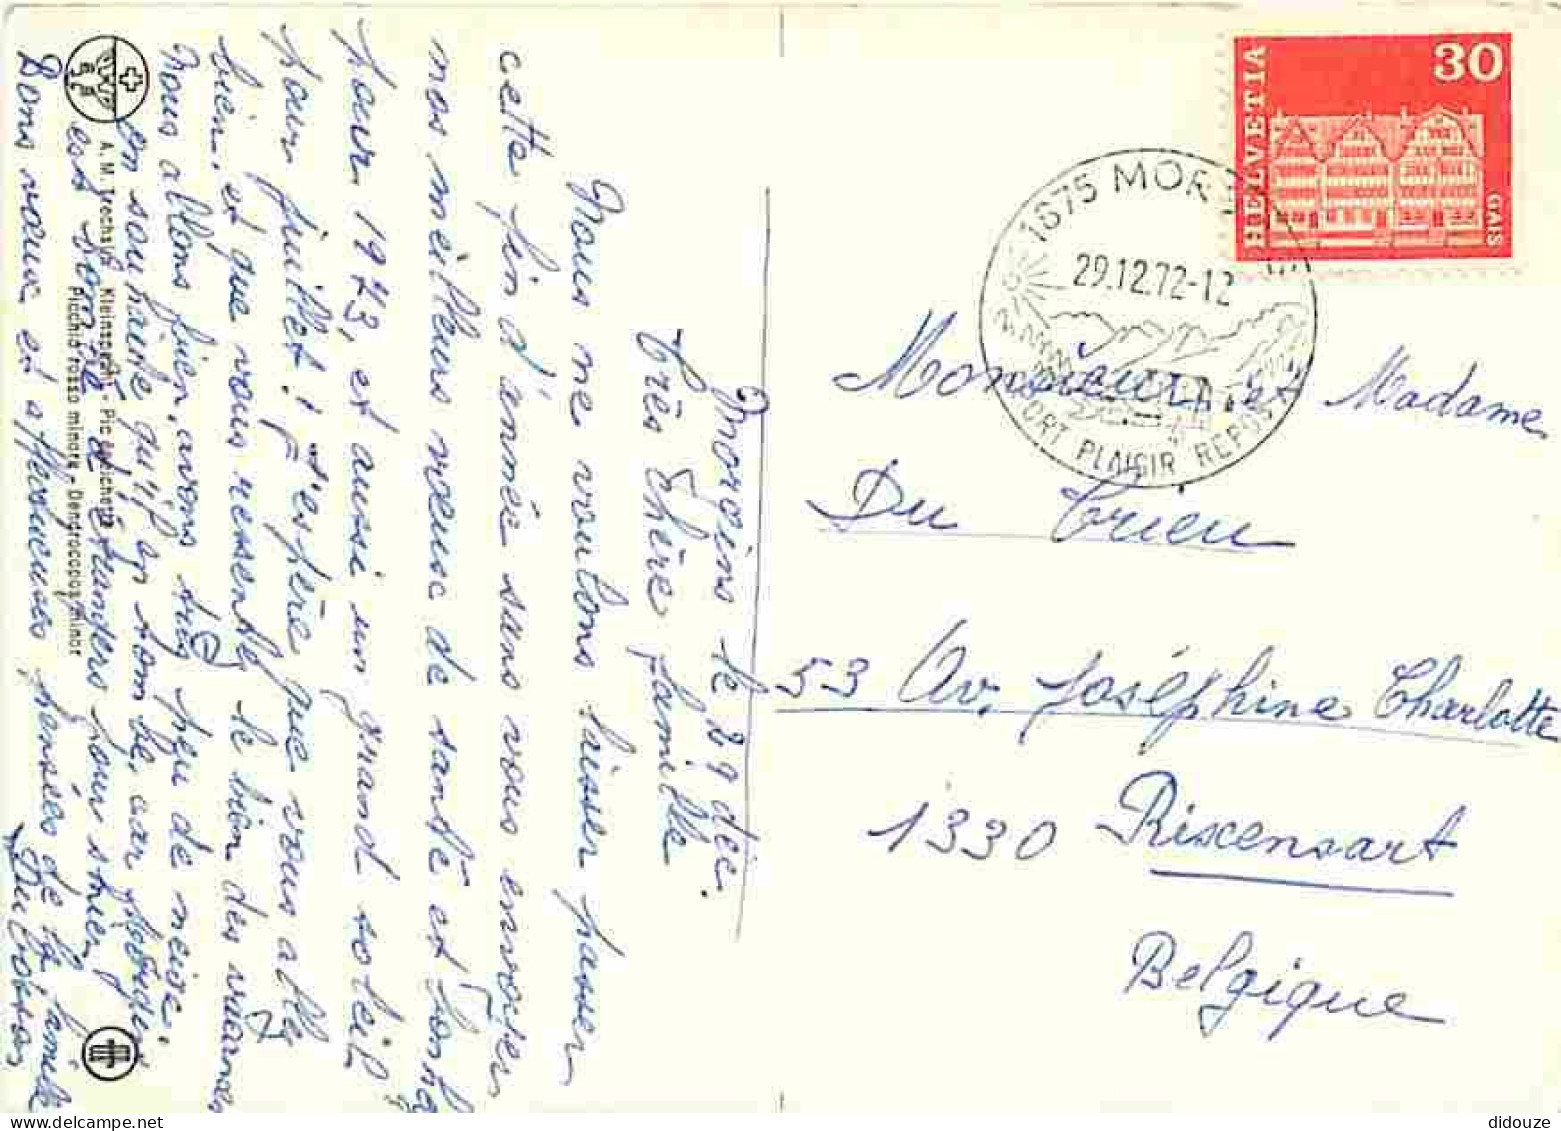 Morgins le 29 déc.
Très chère famille
Nous ne voulons laisser passer
cette fin d'année sans vous envoyer
nos meilleurs vœux de santé et bonheur
pour 1973, et aussi un grand soleil
pour juillet! J'espère que vous allez
bien. et que vous ressentez le bien des vacances
Nous allons bien, avons très peu de neige,
on souhaite qu'il en tombe, car
est d'étrangers pour skier,
Bons vœux et affectueuses pensées de la famille
Dubosson
A. M. Trechslin Kleinspecht - Pic épeichette
Picchio rosso minore - Dendrocopos minor
HELVETIA
30
GAIS
1875 MORGINS
29.12.72-12
SPORT PLAISIR REPOS
Monsieur et Madame
Du Trieu
53 Av. Joséphine Charlotte
1330 Rixensart
Belgique
didouze